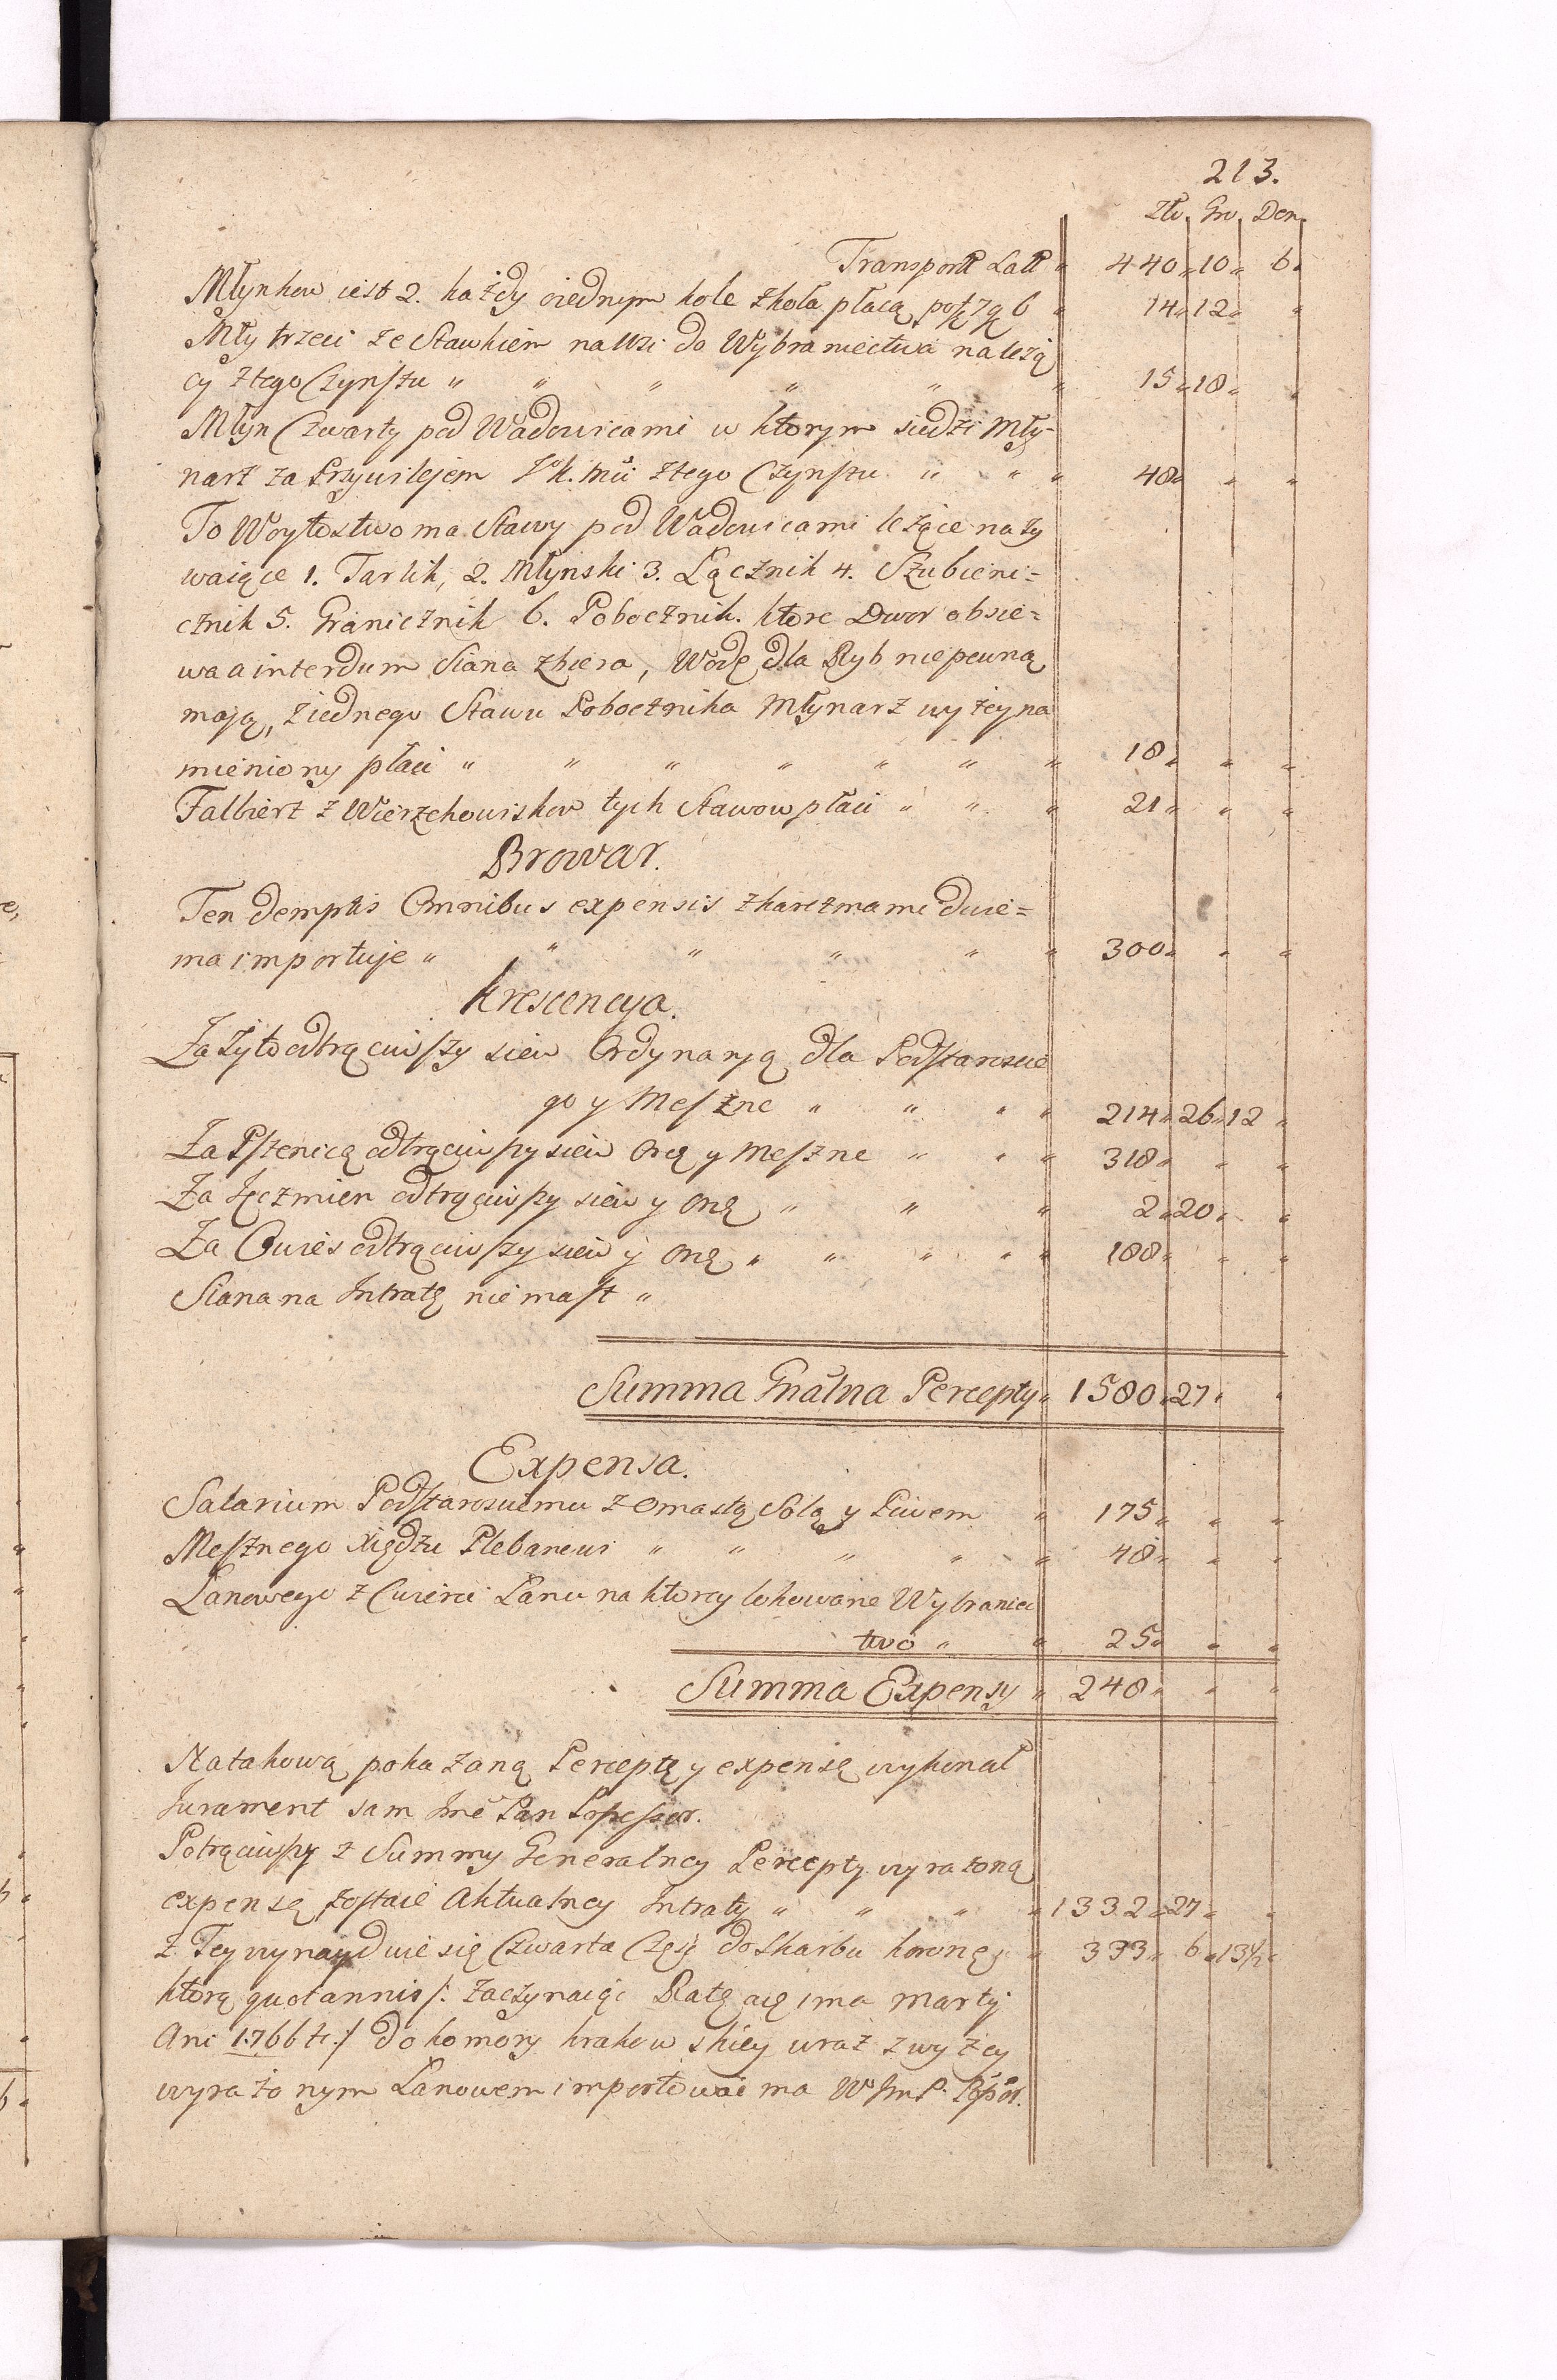 213.
Zło. Gro. Den.
Transport Latt " 440 " 10 " 6 "
Młynkow iest 2. każdy oiednym kole zkoła płacą po zł 7 g 6 " 14 " 12 " "
Mły trzeci ze Stawkiem na Wsi do Wybraniectwa należą
cy ztego Czynszu " " " " " " 15 " 18 " "
Młyn Czwarty pod Wadowicami w ktorym siedzi Mły-
narz za Przywilejem J. K. Mci ztego Czynszu " " " 48 " " "
To Woytostwo ma Stawy pod Wadowicami leżące nazy
waiące 1. Tarlik, 2. Młynski 3. Łącznik 4. Szubieni=
cznik 5. Granicznik 6. Pobocznik. ktore Dwor obsie=
wa a interdum Siana zbiera, Wodę dla Ryb niepewną
mają, ziednego Stawu Pobocznika Młynarz wyżeyna
mieniony płaci " " " " " " " 18 " " "
Falbierz z Wierzchowiskow tych Stawow płaci " " " 21 " " "
Browar.
Ten demptis Omnibus expensis zkarczmami dwie=
ma importuje " " " " " " 300 " " "
Krescencya.
Za Żyto odtrąciwszy siew Ordynaryą dla Podstarosvie
go y Meszne " " " " 214 " 26 " 12 "
Za Pszenicą odtrąciwszy siew Orą y meszne " " " 318 " " "
Za Jęczmien odtrąciwszy siew y Orą " " " 2 " 20 " "
Za Owies odtrąciwszy siew y Orą " " " " " 188 " " "
Siana na Intratę nie masz "
Summa Gnalna Percepty " 1580 " 27 " "
Expensa.
Salarium Podstarosciemu z Omastą Solą y Piwem " 175 " " "
Mesznego xiędzu Plebanowi " " " " " 48 " " "
Lanowego z Cwierci Lanu na ktorey lokowane Wybraniec
two " " 25 " " "
Summa Expensy " 248 " " "
Na takową pokazaną Perceptę y expensę wykonał
Jurament sam Jmć Pan Possessor.
Potrąciwszy z Summy Generalney Percepty wyrażoną
expensę zostaie Aktualney Intraty " " " " 1332 " 27 " "
z Tey wynayduie się Czwarta Część do Skarbu koronęgo " 333 " 6 " 13 1/2 "
ktorą quotannis /: zaczynaiąc Ratę a 1ma Martij
Ani 1766 ti :/ do komory krakowskiey wraz z wyżey
wyrażonym Lanowem importować ma W. Jm P. Possor.